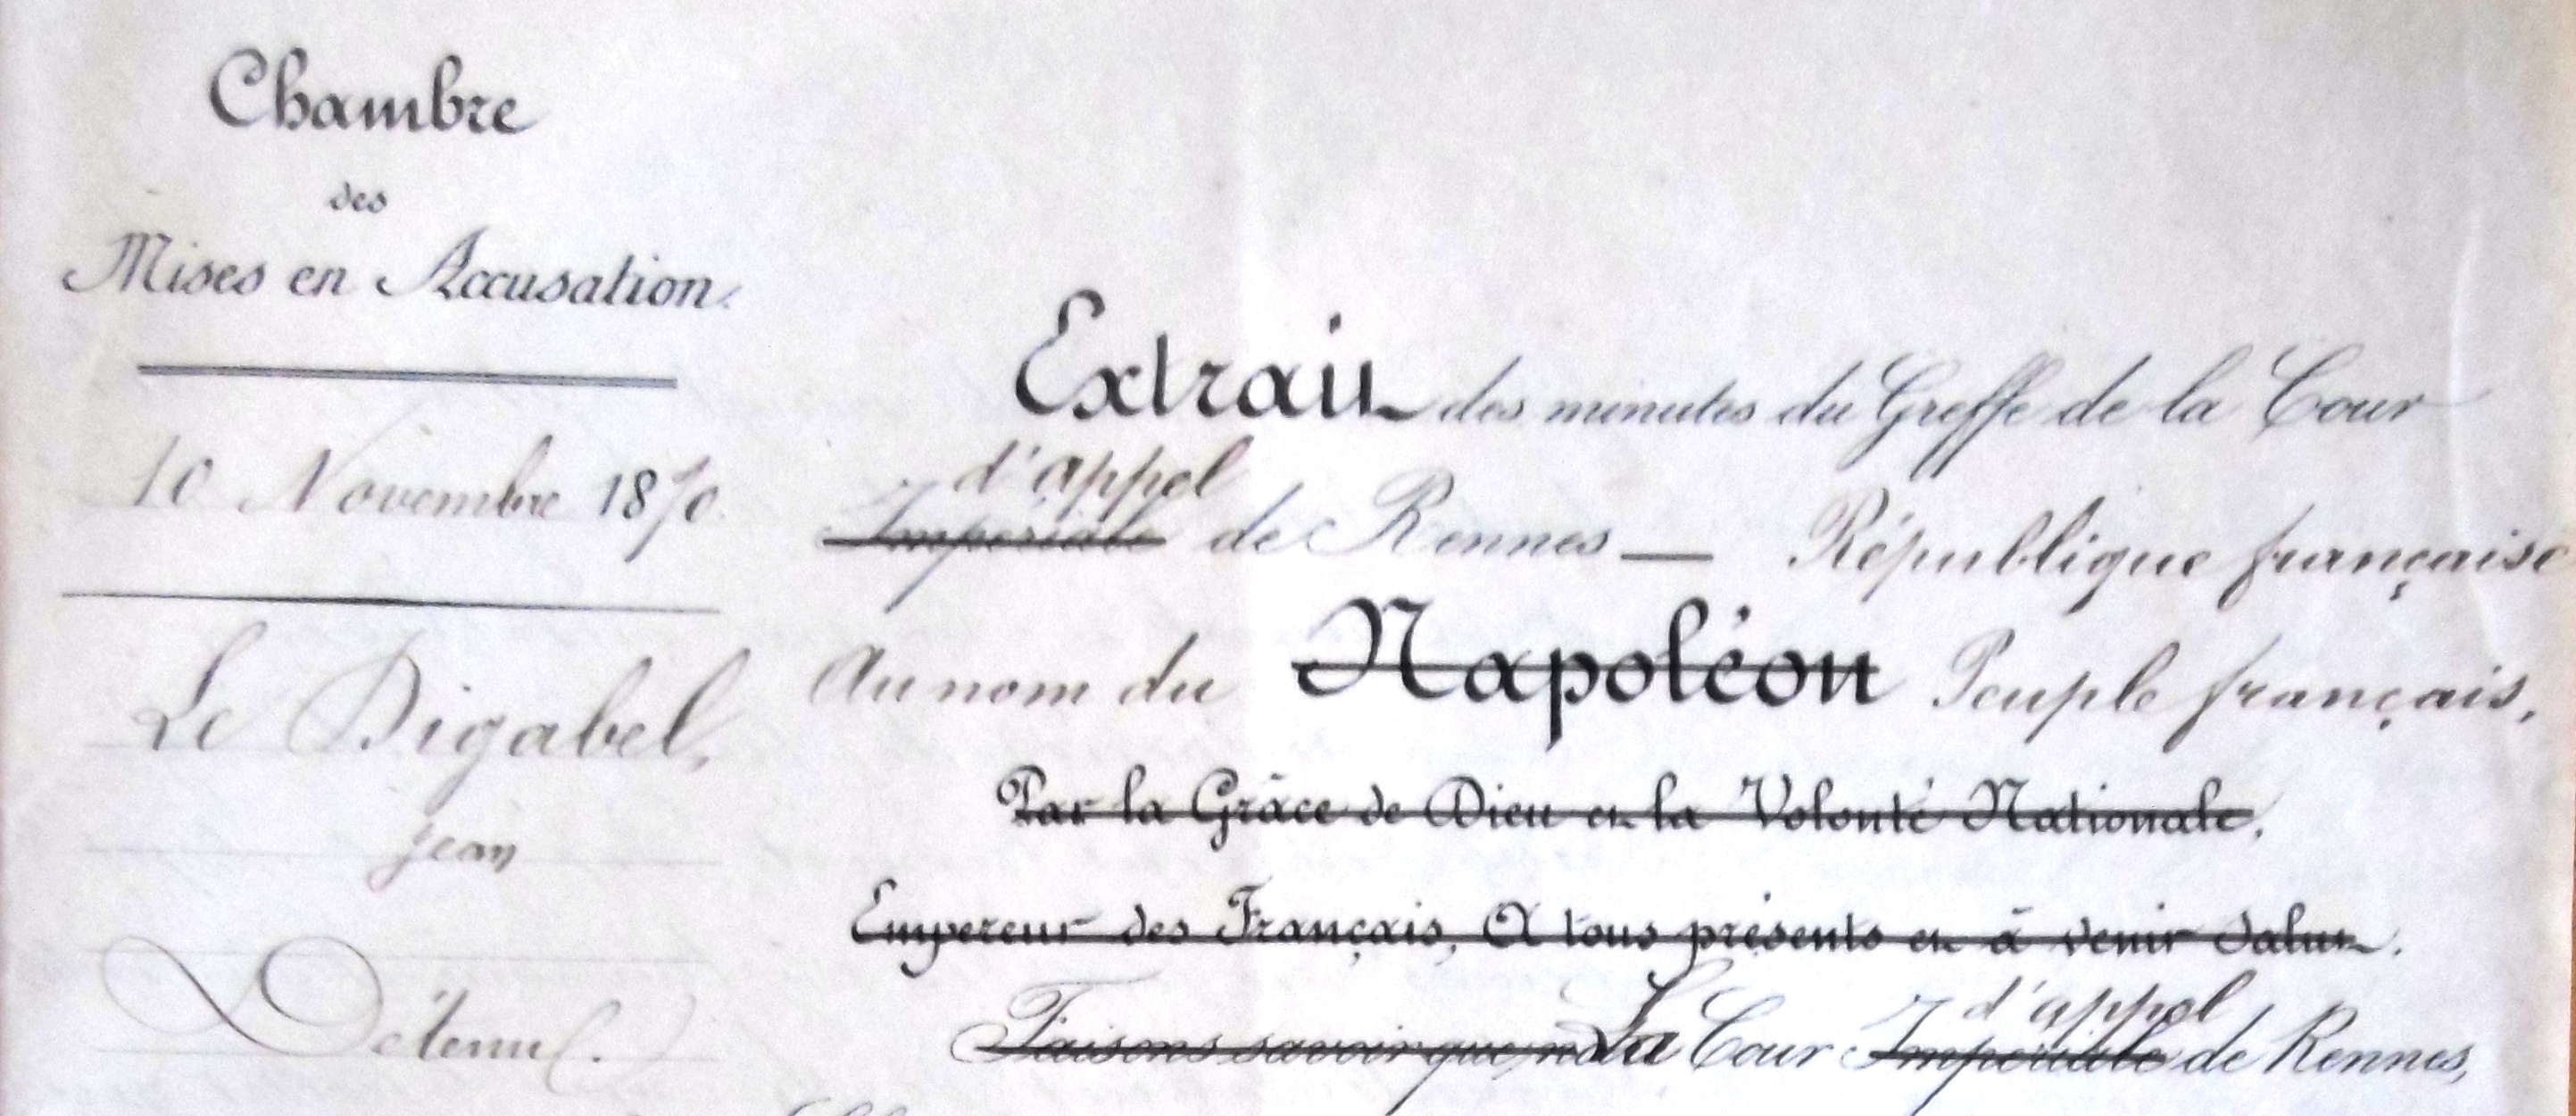 Chambre
des
Mises en Accusation.
10 Novembre 1870.
Le Digabel,
jean
Détenu.
Extrait des minutes du Greffe de la Cour
d'appel
Impériale de Rennes — République française
Au nom du Napoléon Peuple français,
Par la Grâce de Dieu et la Volonté Nationale,
Empereur des Français, A tous présents et à venir Salut.
d'appel
Faisons savoir que La Cour Impériale de Rennes,